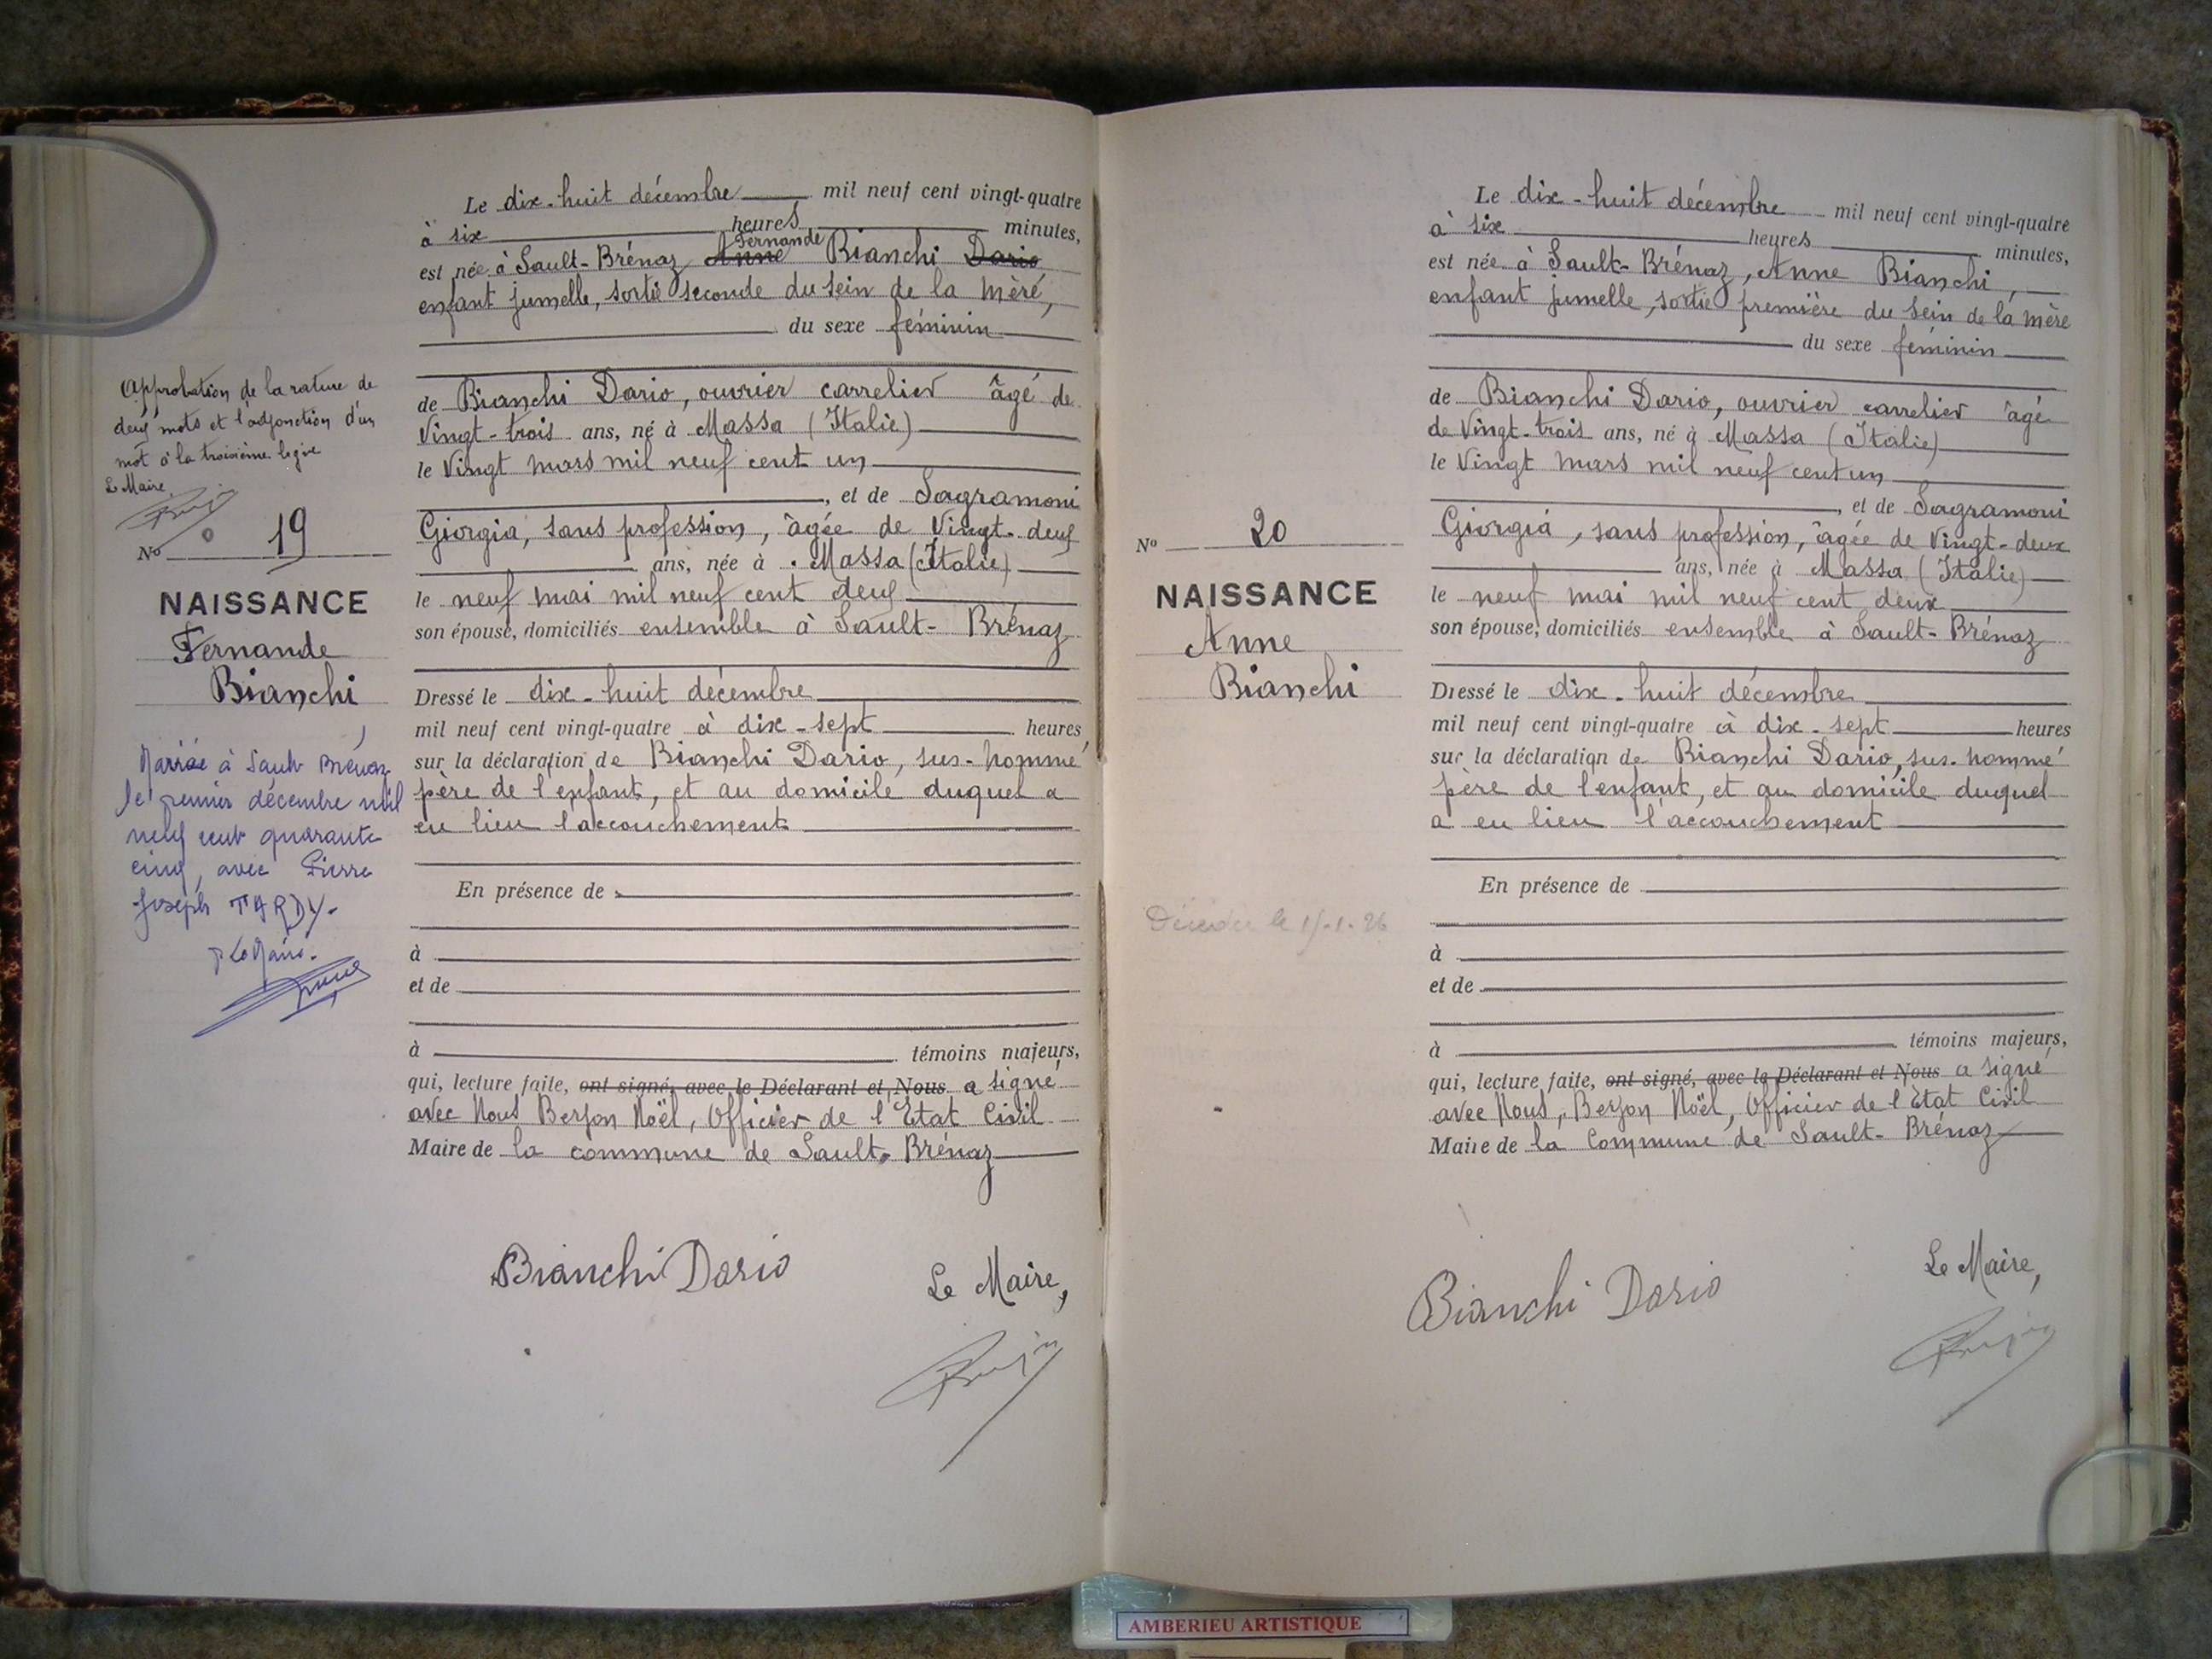 Le dix-huit décembre mil neuf cent vingt-quatre
à six heures minutes,
Fernande
est née à Sault-Brénaz Anne Bianchi Dario
enfant jumelle, sortie seconde du sein de la mère,
du sexe féminin
de Bianchi Dario, ouvrier carrelier âgé de
Vingt-trois ans, né à Massa (Italie)
le Vingt mars mil neuf cent un
, et de Sagramoni
Giorgia, sans profession, âgée de Vingt-deux
ans, née à Massa (Italie)
le neuf mai mil neuf cent deux
son épouse, domiciliés ensemble à Sault-Brénaz
Dressé le dix-huit décembre
mil neuf cent vingt-quatre à dix-sept heures
sur la déclaration de Bianchi Dario, sus-nommé
père de l'enfant, et au domicile duquel a
eu lieu l'accouchement
En présence de
à
et de
à témoins majeurs,
qui, lecture faite, ont signé, avec le Déclarant et Nous a signé
avec Nous Berjon Noël, Officier de l'Etat Civil
Maire de la commune de Sault-Brénaz
Bianchi Dario
Le Maire,
Approbation de la rature de
deux mots et l'adjonction d'un
mot à la troisième ligne
Le Maire
No 19
NAISSANCE
Fernande
Bianchi
Mariée à Sault Brénaz
le premier décembre mil
neuf cent quarante
cinq, avec Pierre
Joseph TARDY.
Le Maire.
Le dix-huit décembre mil neuf cent vingt-quatre
à six heures minutes,
est née à Sault-Brénaz, Anne Bianchi,
enfant jumelle, sortie première du sein de la mère
du sexe féminin
de Bianchi Dario, ouvrier carrelier âgé
de Vingt-trois ans, né à Massa (Italie)
le Vingt mars mil neuf cent un
, et de Sagramoni
Giorgia, sans profession, âgée de Vingt-deux
ans, née à Massa (Italie)
le neuf mai mil neuf cent deux
son épouse, domiciliés ensemble à Sault-Brénaz
Dressé le dix-huit décembre
mil neuf cent vingt-quatre à dix-sept heures
sur la déclaration de Bianchi Dario, sus-nommé
père de l'enfant, et au domicile duquel
a eu lieu l'accouchement
En présence de
à
et de
à témoins majeurs,
qui, lecture faite, ont signé, avec le Déclarant et Nous a signé
avec Nous, Berjon Noël, Officier de l'Etat Civil
Maire de la Commune de Sault-Brénaz
Bianchi Dario
Le Maire,
No 20
NAISSANCE
Anne
Bianchi
Décédée le
AMBERIEU ARTISTIQUE